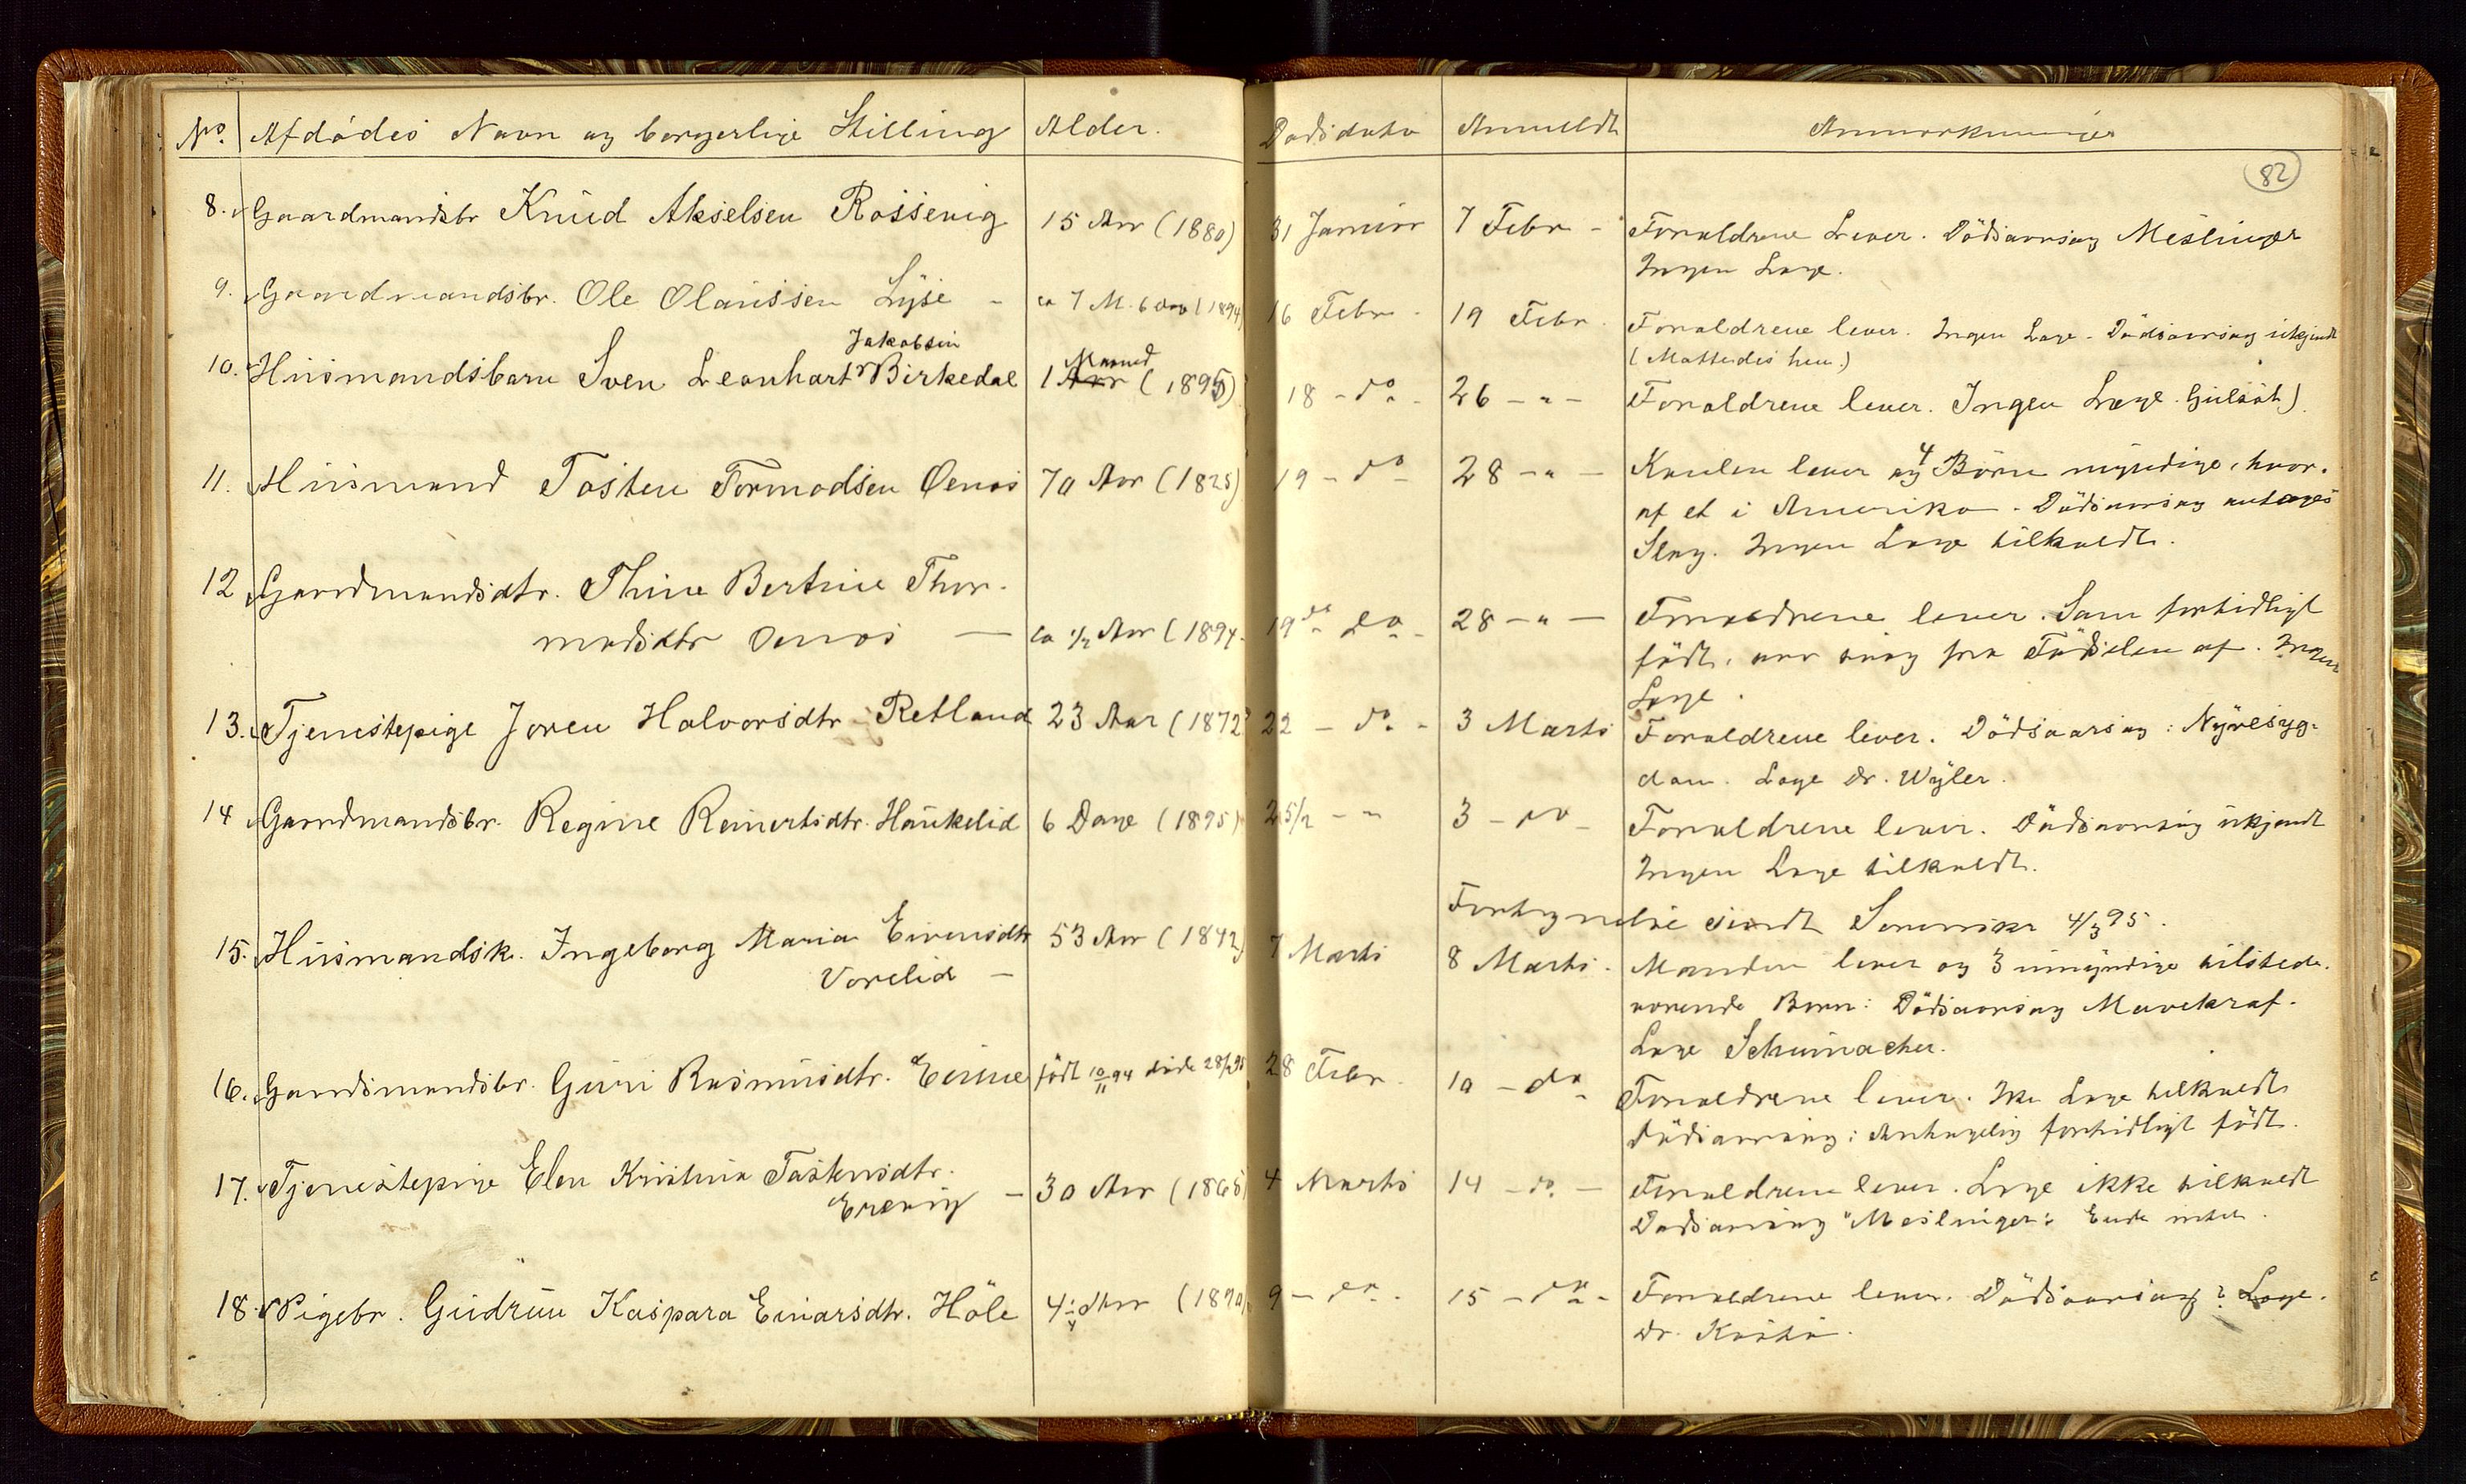 No. Afdödes Navn og borgerlige Stilling Alder. Dödsdato Anmeldt Anmærkninger
82
8. Gaardmandsbr Knud Akselsen Rossevig 15 Aar (1880) 31 Januar 7 Febr - Forældrene Lever. Dödsaarsag Meslinger
Ingen Læge.
9. Gaardmandsbr. Ole Olaussen Lyse - ca 7 M. 6 Dag (1894) 16 Febr. 19 Febr. Forældrene lever. Ingen Læge - Dödsaarsag ukjendt
(Mattedes hen.)
Jakobsen Maaned
10. Husmandsbarn Sven Leonhart Birkedal 1 Aar (1895) 18 - do - 26 - " - Forældrene lever. Ingen Læge. Gulsöt)
11. Husmand Tosten Tormodsen Oenes 70 Aar (1825) 19 - do - 28 - " - Konen lever og 4 Börn myndige, hvor-
af et i Amerika. Dödsaarsag antages
Slag. Ingen Læge tilkaldt.
12 Gaardmandsdtr. Thine Bertine Thor-
modsdtr Oenes - ca 1/2 Aar (1894. 19de do. 28 - " - Forældrene lever. Som fortidligt
födt, var svag fra Födselen af. Ingen
Læge.
13. Tjenestepige Joren Halvorsdtr Retland 23 Aar (1872) 22 - do - 3 Marts Forældrene lever. Dödsaarsag: Nyresyg-
dom. Læge Dr. Wyler.
14 Gaardmandsbr. Regine Reinertsdtr. Haukelid 6 Dage (1895) 25/2 - " 3 - do - Forældrene lever. Dödsaarsag ukjendt
Ingen Læge tilkaldt.
Fortegnelse sendt Sorenskr 4/3 95.
15. Husmandsk. Ingeborg Maria Eivensdtr 53 Aar (1842) 7 Marts 8 Marts. Manden lever og 3 umyndige tilstede-
Vorelid - værende Börn: Dödsaarsag Mavekræf-
Læge Schumacher.
16. Gaardsmandsbr. Guri Rasmusdtr. Eiene födt 10/11 94 döde 28/2 95 28 Febr. 10 - do - Forældrene lever. Ikke Læge tilkaldt
Dödsaarsag: Antagelig fortidligt födt.
17. Tjenestepige Elen Kristina Tostensdtr. - 30 Aar (1865) 4 Marts 14 - do. - Forældrene lever. Læge ikke tilkaldt
Erevig Dödsaarsag "Meslinger".
18. Pigebr. Gudrun Kaspara Einarsdtr. Höle 4 1/4 Aar (1890) 9 - do - 15 - do - Forældrene lever. Dödsaarsag? Læge.
Dr.